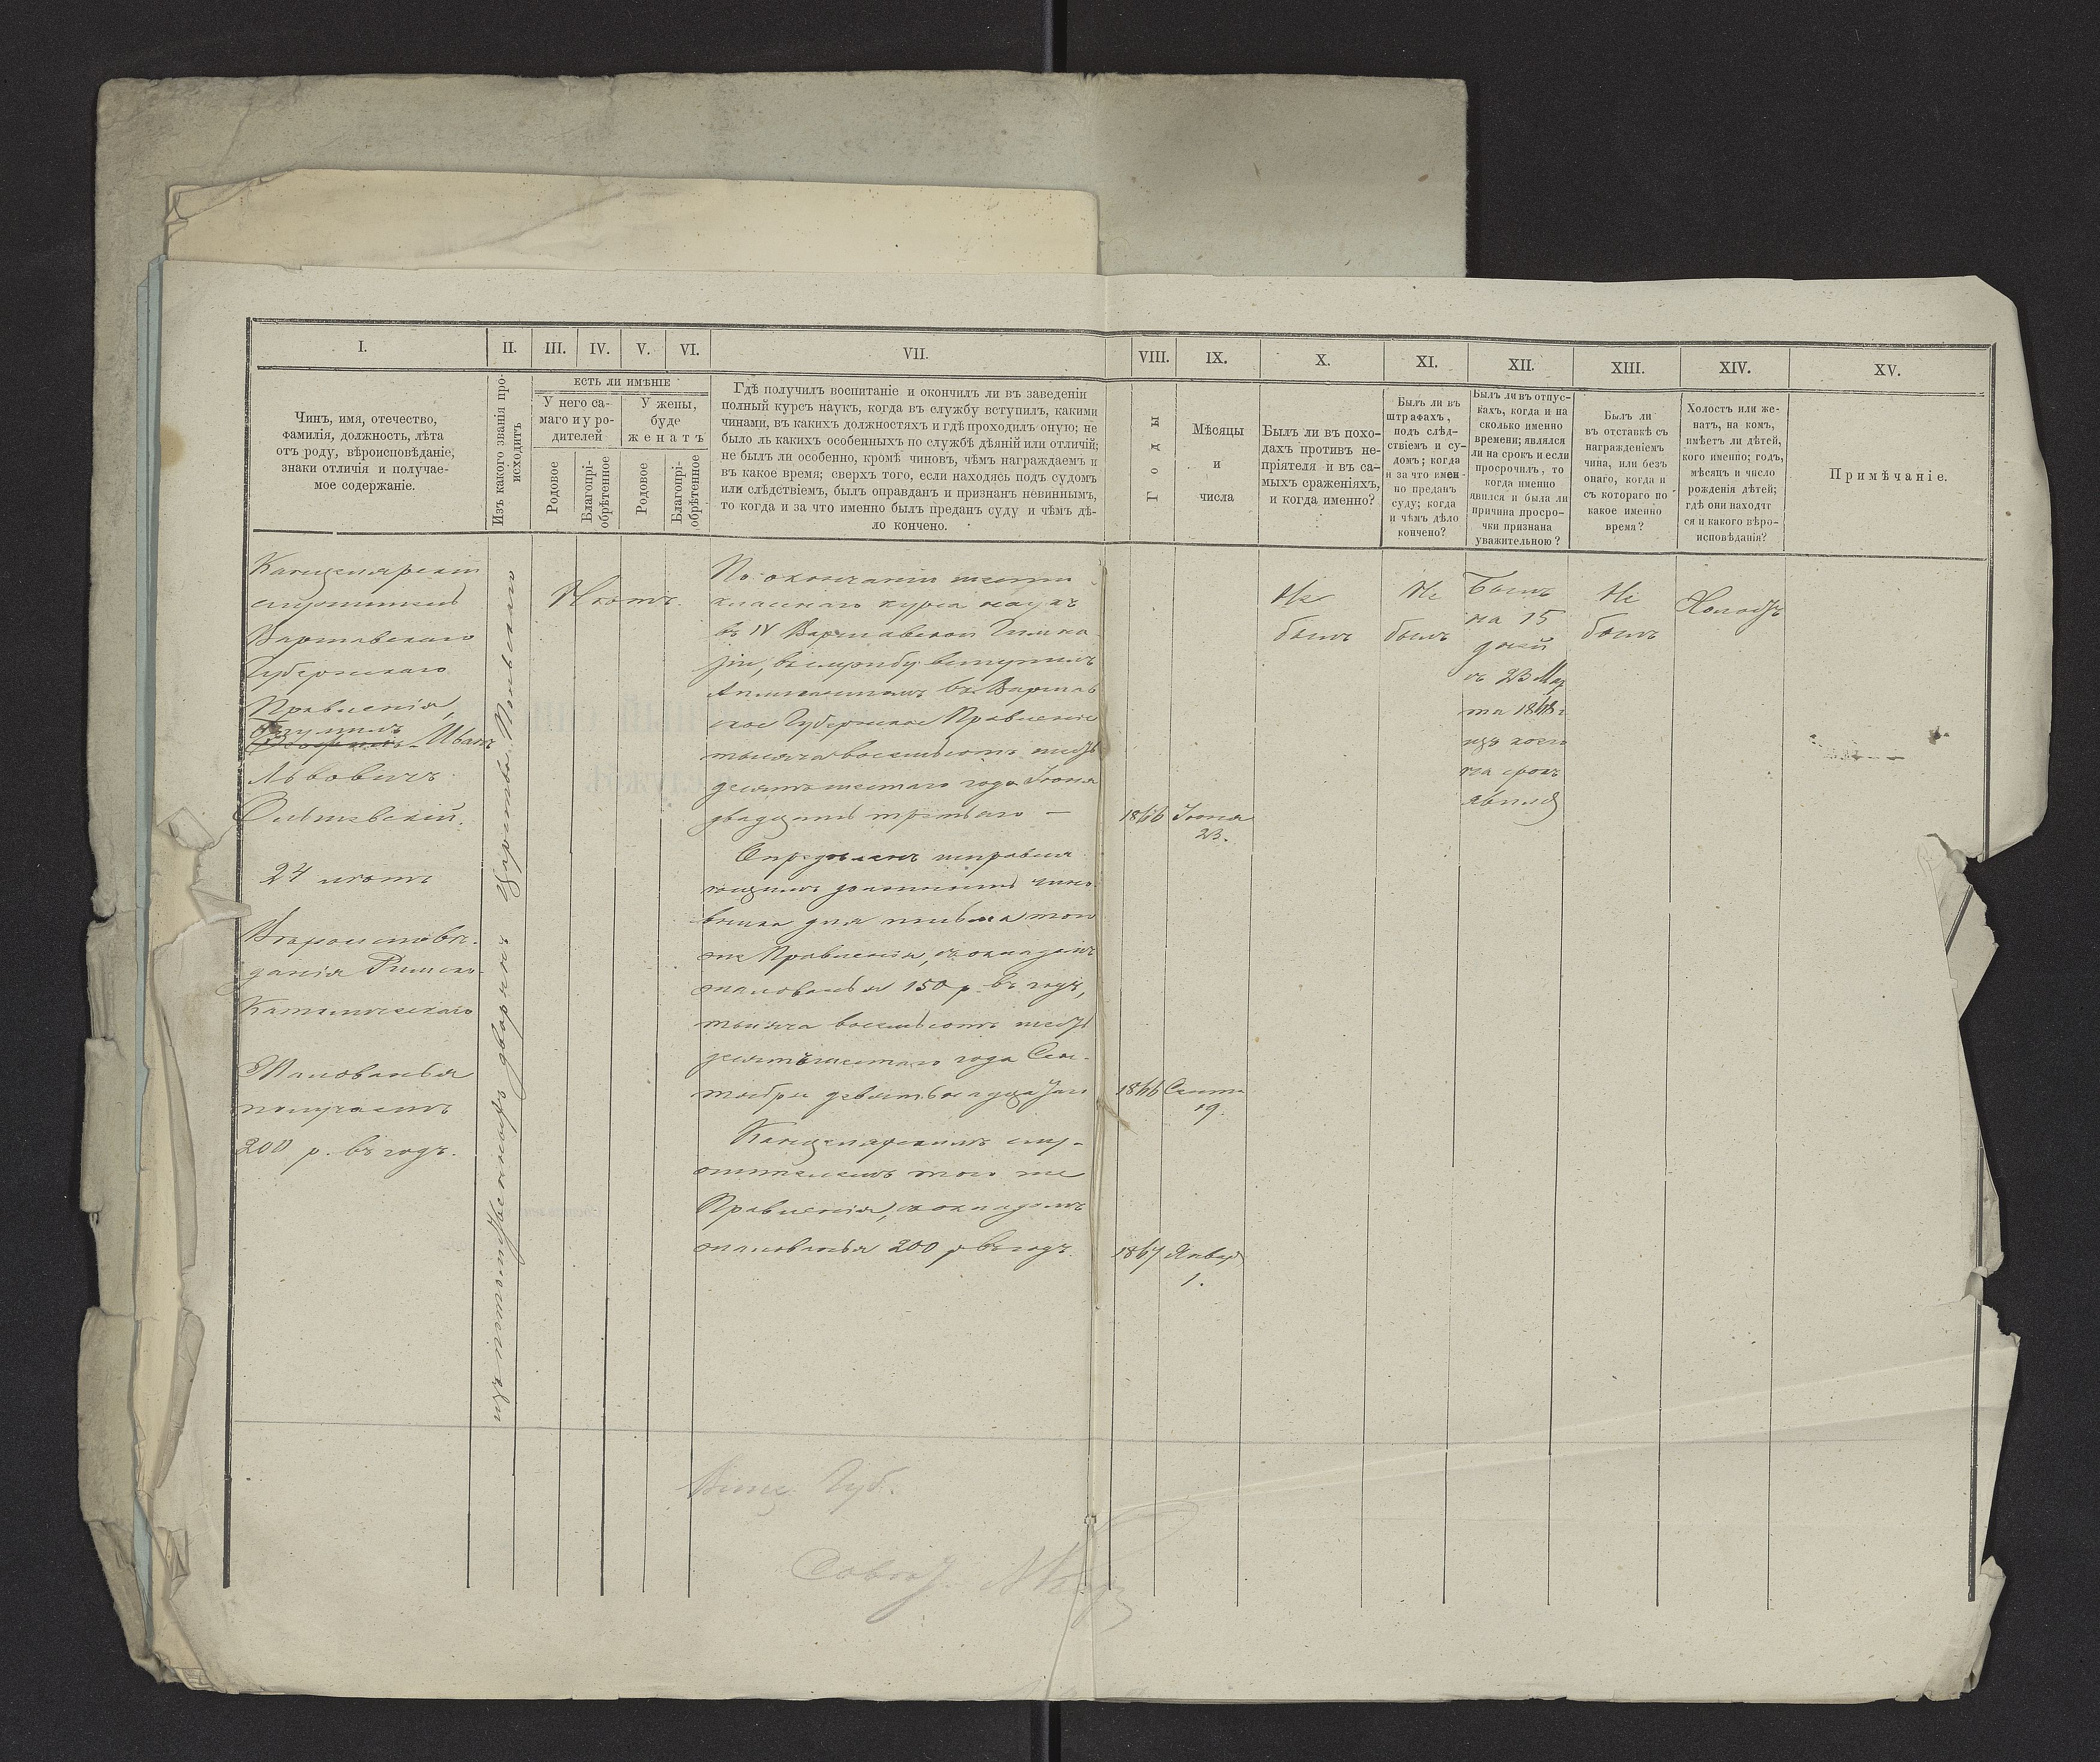 I.
II.
III.
IV.
V.
VI.
VII.
VIII.
IX.
X.
XI.
XII.
XIII.
XIV.
XV.
Чинъ, имя, отечество,
фамилія, должность, лѣта
отъ роду, вѣроисповѣданіе,
знаки отличія и получае-
мое содержаніе.
Изъ какого званія про-
исходитъ
ЕСТЬ ЛИ ИМѢНІЕ
У него са-
маго и у ро-
дителей
У жены,
буде
женатъ
Родовое
Благопрі-
обрѣтенное
Родовое
Благопрі-
обрѣтенное
Гдѣ получилъ воспитаніе и окончилъ ли въ заведеніи
полный курсъ наукъ, когда въ службу вступилъ, какими
чинами, въ какихъ должностяхъ и гдѣ проходилъ оную; не
было ль какихъ особенныхъ по службѣ дѣяній или отличій;
не былъ ли особенно, кромѣ чиновъ, чѣмъ награждаемъ и
въ какое время; сверхъ того, если находясь подъ судомъ
или слѣдствіемъ, былъ оправданъ и признанъ невиннымъ,
то когда и за что именно былъ преданъ суду и чѣмъ дѣ-
ло кончено.
Годы
Мѣсяцы
и
числа
Былъ ли въ похо-
дахъ противъ не-
пріятеля и въ са-
мыхъ сраженіяхъ,
и когда именно?
Былъ ли въ
штрафахъ,
подъ слѣд-
ствіемъ и су-
домъ; когда
и за что имен-
но преданъ
суду; когда
и чѣмъ дѣло
кончено?
Былъ ли въ отпус-
кахъ, когда и на
сколько именно
времени; являлся
ли на срокъ и если
просрочилъ, то
когда именно
явился и была ли
причина просро-
чки признана
уважительною?
Былъ ли
въ отставкѣ съ
награжденіемъ
чина, или безъ
онаго, когда и
съ котораго по
какое именно
время?
Холостъ или же-
натъ, на комъ,
имѣетъ ли дѣтей,
кого именно; годъ,
мѣсяцъ и число
рожденія дѣтей;
гдѣ они находят
ся и какого вѣро-
исповѣданія?
Примѣчаніе.
Канцелярскій
служитель
Варшавскаго
Губернскаго
Правленія,
Иванъ
Львовичъ
24 лѣтъ
Вѣроисповѣ-
данія Римско-
Католическаго
Жалованья
получаетъ
200 р. въ годъ.
изъ потомственныхъ дворянъ Царства Польскаго
Нѣтъ.
По окончаніи шести
класснаго курса наукъ
въ IV Варшавской Гимна
зіи, въ службу вступилъ
Апликантомъ въ Варшав
ское Губернское Правленіе
тысяча восемьсотъ шесть
десятъ шестаго года Іюня
двадцать третьяго —
1866 Іюня
23.
Опредѣленъ исправля
ющимъ должность чино
вника для письма того
же Правленія, съ окладомъ
жалованья 150 р. въ годъ,
тысяча восемьсотъ шесть
десятъ шестаго года Сен-
тября девятьнадцатаго
1866 Сентя
19.
Канцелярскимъ слу-
жителемъ того же
Правленія, съ окладомъ
жалованья 200 р въ годъ.
1867 Январ
1.
Не
былъ
Не
былъ
Былъ
на 15
дней
съ 23 Мар
та 1868 г
изъ коего
на срокъ
явился
Не
былъ
Холостъ
Вице Губ.
Совѣт.